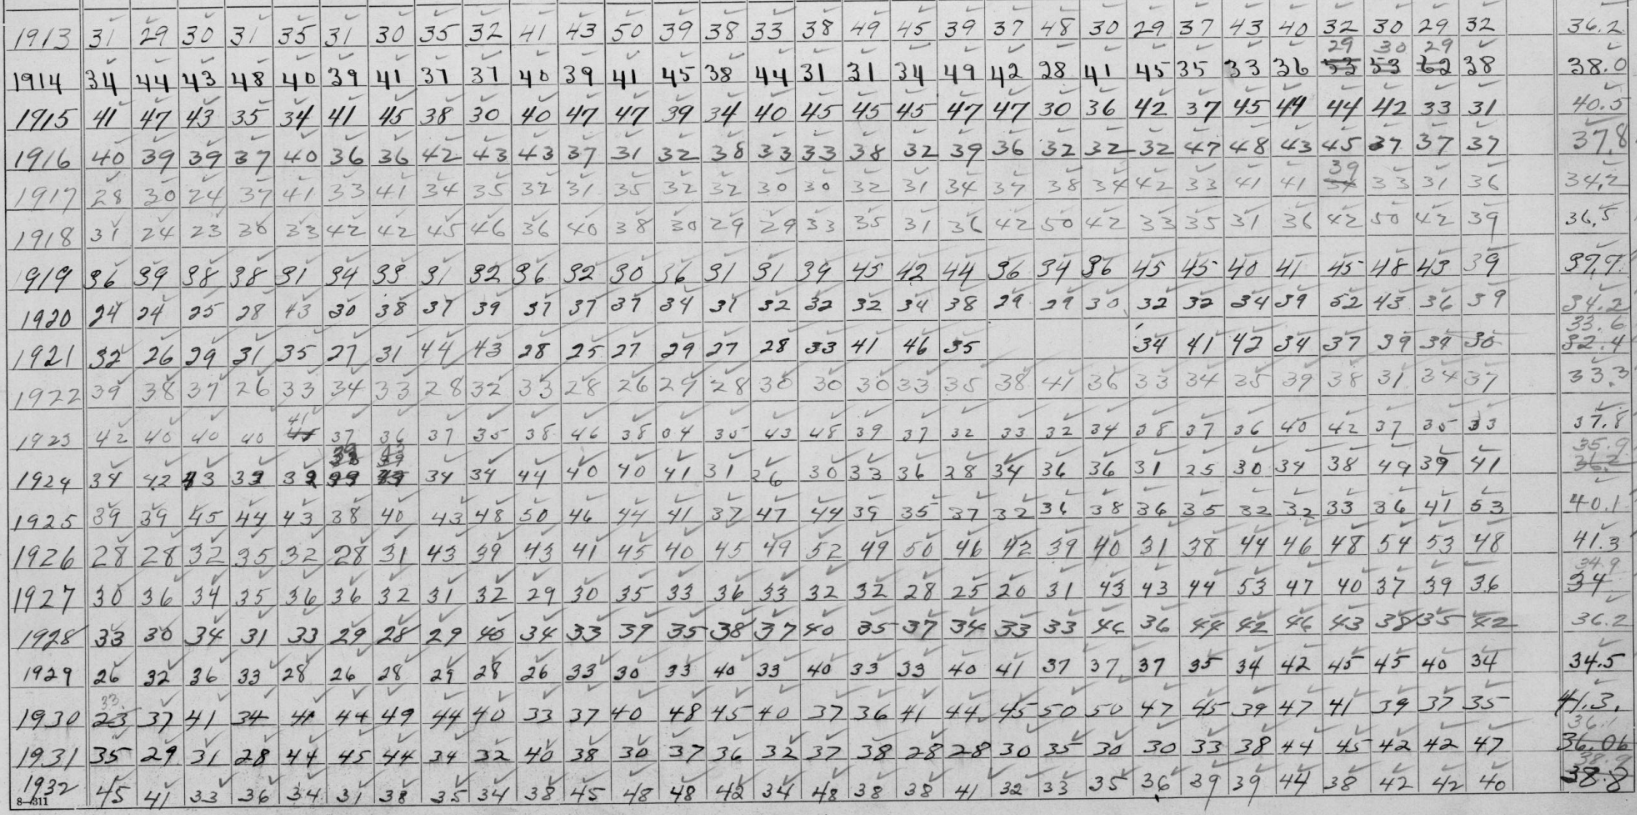 1913 31 29 30 31 35 31 30 35 32 41 43 50 39 38 33 38 49 45 39 37 48 30 29 37 43 40 32 30 29 32 36.2
29 30 29
1914 34 44 43 48 40 39 41 37 37 40 39 41 45 38 44 31 31 34 49 42 28 41 45 35 33 36 53 53 62 38 38.0
1915 41 47 43 35 34 41 45 38 30 40 47 47 39 34 40 45 45 45 47 47 30 36 42 37 45 44 44 42 33 31 40.5
1916 40 39 39 37 40 36 36 42 43 43 37 31 32 38 33 33 38 32 39 36 32 32 32 47 48 43 45 37 37 37 37.8
39
1917 28 30 24 37 41 33 41 34 35 32 31 35 32 32 30 30 32 31 34 37 38 34 42 33 41 41 34 33 31 36 34.2
1918 31 24 23 30 33 42 42 45 46 36 40 38 30 29 29 33 35 31 36 42 50 42 33 35 31 36 42 50 42 39 36.5
919 36 39 38 38 31 34 33 31 32 36 32 30 36 31 31 39 45 42 44 36 34 36 45 45 40 41 45 48 43 39 37.7
1920 24 24 25 28 43 30 38 37 39 37 37 37 34 31 32 32 32 34 38 29 29 30 32 32 34 39 52 43 36 39 34.2
33.6
1921 32 26 29 31 35 27 31 44 43 28 25 27 29 27 28 33 41 46 35 34 41 42 34 37 39 39 30 32.4
1922 39 38 37 26 33 34 33 28 32 33 28 26 29 28 30 30 30 33 35 38 41 36 33 34 35 39 38 31 34 37 33.3
41
1923 42 40 40 40 37 36 37 35 38 46 38 04 35 43 48 39 37 32 33 32 34 38 37 36 40 42 37 35 33 37.8
39 43 35.9
1924 34 42 43 39 39 34 34 44 40 40 41 31 26 30 33 36 28 34 36 36 31 25 30 34 38 49 39 41 36.2
1925 39 39 45 44 43 38 40 43 48 50 46 44 41 37 47 44 39 35 37 32 36 38 36 35 32 32 33 36 41 53 40.1
1926 28 28 32 35 32 28 31 43 39 43 41 45 40 45 49 52 49 50 46 42 39 40 31 38 44 46 48 54 53 48 41.3
34.9
1927 30 36 34 35 36 36 32 31 32 29 30 35 33 36 33 32 32 28 25 20 31 43 43 44 53 47 40 37 39 36 34
1928 33 30 34 31 33 29 28 29 40 34 33 39 35 38 37 40 35 37 34 33 33 46 36 44 42 46 43 38 35 42 36.2
1929 26 32 36 33 28 26 28 29 28 26 33 30 33 40 33 40 33 33 40 41 37 37 37 35 34 42 45 45 40 34 34.5
33
1930 23 37 41 34 41 44 49 44 40 33 37 40 48 45 40 37 36 41 44 45 50 50 47 45 39 47 41 39 37 35 41.3.
36.1
1931 35 29 31 28 44 45 44 34 32 40 38 30 37 36 32 37 38 28 28 30 35 30 30 33 38 44 45 42 42 47 36.06
1932 45 41 33 36 34 31 38 35 34 38 45 48 48 42 34 48 38 38 41 32 33 35 36 39 39 44 38 42 42 40 38.8
8-311